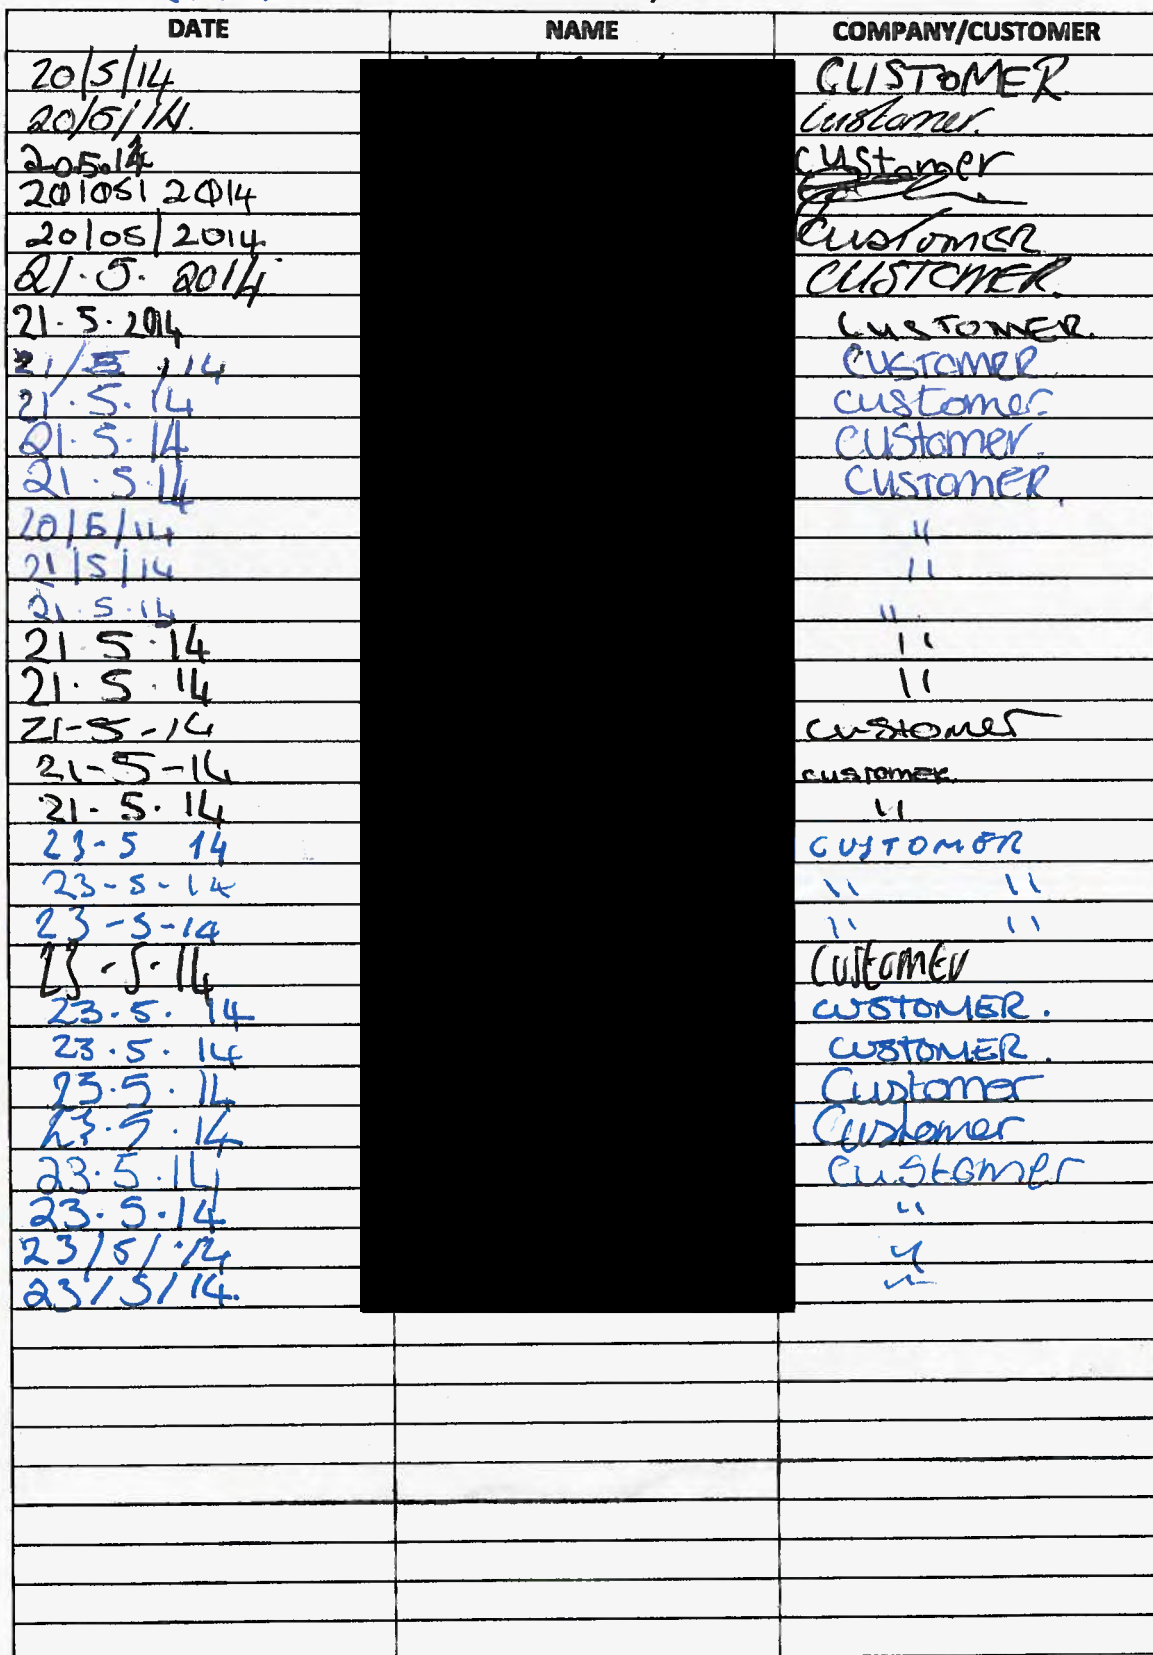 DATE NAME COMPANY/CUSTOMER
20/5/14 CUSTOMER
20/5/14. Customer.
20.5.14 Customer
20/05/2014
20/05/2014. CUSTOMER
21.5.2014 CUSTOMER.
21.5.2014 CUSTOMER.
21/5/14 CUSTOMER
21.5.14 customer
21.5.14 Customer.
21.5.14 CUSTOMER.
20/5/14 "
21/5/14 "
21.5.14 "
21.5.14 "
21.5.14 "
21-5-14 customer
21-5-14 customer.
21-5.14 "
23-5 14 CUSTOMER
23-5-14 " "
23-5-14 " "
23-5-14 Customer
23.5.14 CUSTOMER.
23.5.14 CUSTOMER.
23.5.14 Customer
23.5.14 Customer
23.5.14 Customer
23.5.14 "
23/5/14 "
23/5/14. "